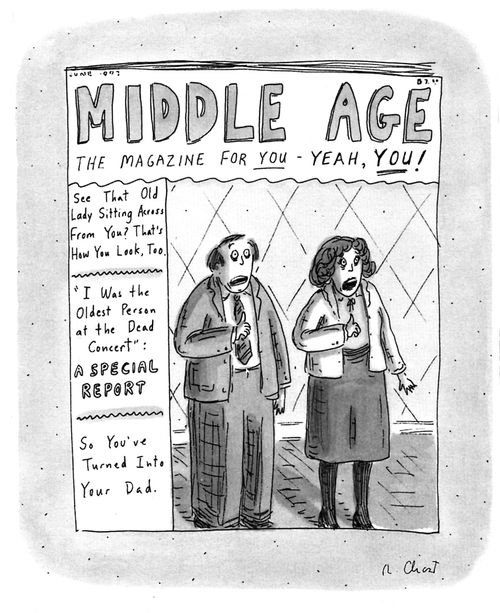 JUNE 1993
$3.00
MIDDLE AGE
THE MAGAZINE FOR YOU - YEAH, YOU!
See That Old
Lady Sitting Across
From You? That's
How You Look, Too.
"I Was the
Oldest Person
at the Dead
Concert":
A SPECIAL
REPORT
So You've
Turned Into
Your Dad.
R. Chast